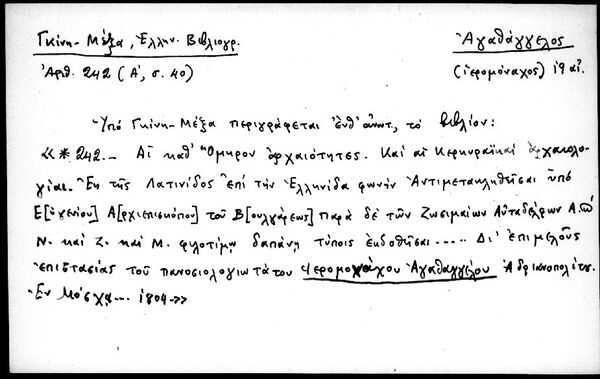 Γκίνη - Μέξα, Ἑλλην. Βιβλιογρ. Ἀγαθάγγελος
Ἀριθ. 242 (Α', σ. 40) (ἱερομόναχος) 19 αἰ.
Ὑπό Γκίνη-Μέξα περιγράφεται ἐνθ' ἀνωτ., τό βιβλίον:
«*242.- Αἱ καθ' Ὅμηρον ἀρχαιότητες. Καί αἱ Κερκυραϊκαί ἀρχαιολο-
γίαι. Ἐκ τῆς Λατινίδος ἐπί τήν Ἑλληνίδα φωνήν Ἀντιμετακληθεῖσαι ὑπό
Ε[ὐγενίου] Α[ρχιεπισκόπου] τοῦ Β[ουλγάρεως] παρά δέ τῶν Ζωσιμαίων Αὐταδέλφων
Ν. καί Ζ. καί Μ. φιλοτίμῳ δαπάνῃ τύποις ἐκδοθεῖσαι..... Δι' ἐπιμελοῦς
ἐπιστασίας τοῦ πανοσιολογιωτάτου Ἱερομονάχου Ἀγαθαγγέλου Ἀδριανοπολίτου.
Ἐν Μόσχᾳ... 1804.»